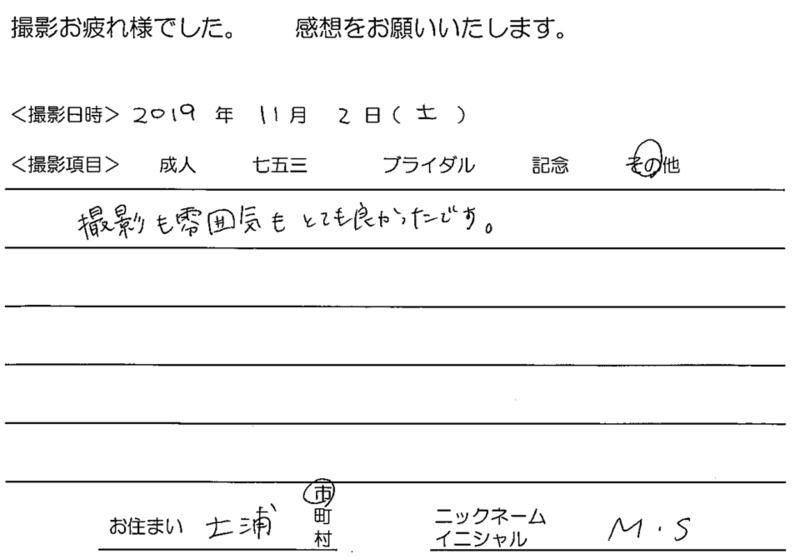 撮影お疲れ様でした。 感想をお願いいたします。
＜撮影日時＞ 2019 年 11月 2 日（ 土 ）
＜撮影項目＞ 成人 七五三 ブライダル 記念 その他
撮影も雰囲気もとても良かったです。
お住まい 土浦 市
町
村
ニックネーム
イニシャル M.S